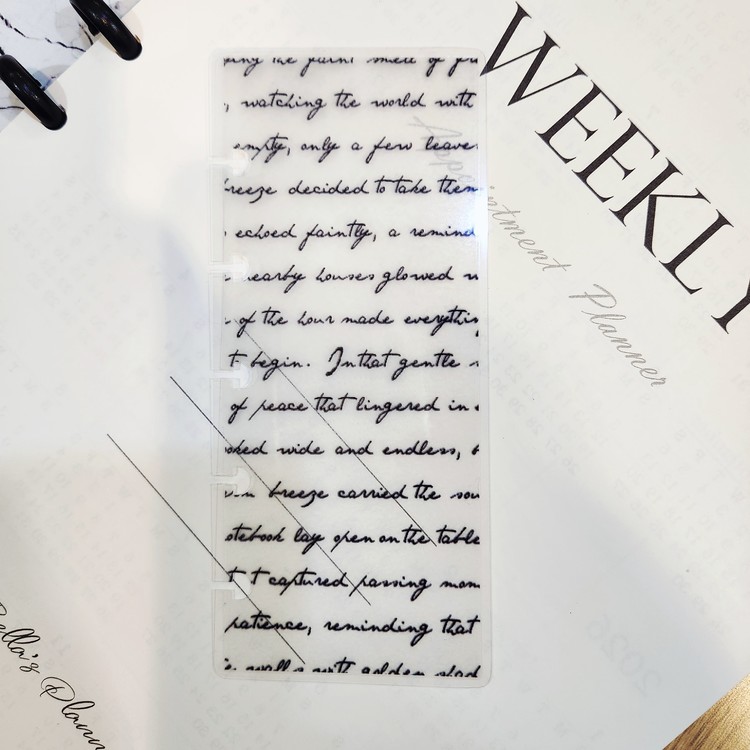 the faint smell of
watching the world with
empty, only a few leaves
breeze decided to take them
echoed faintly, a remind
nearby houses glowed
of the hour made everything
t begin. In that gentle
of peace that lingered in
oked wide and endless,
breeze carried the sou
otebook lay open on the table
t captured passing mom
patience, reminding that
walls with golden shad
WEEKLY
Appointment Planner
Bella's Plann
2026